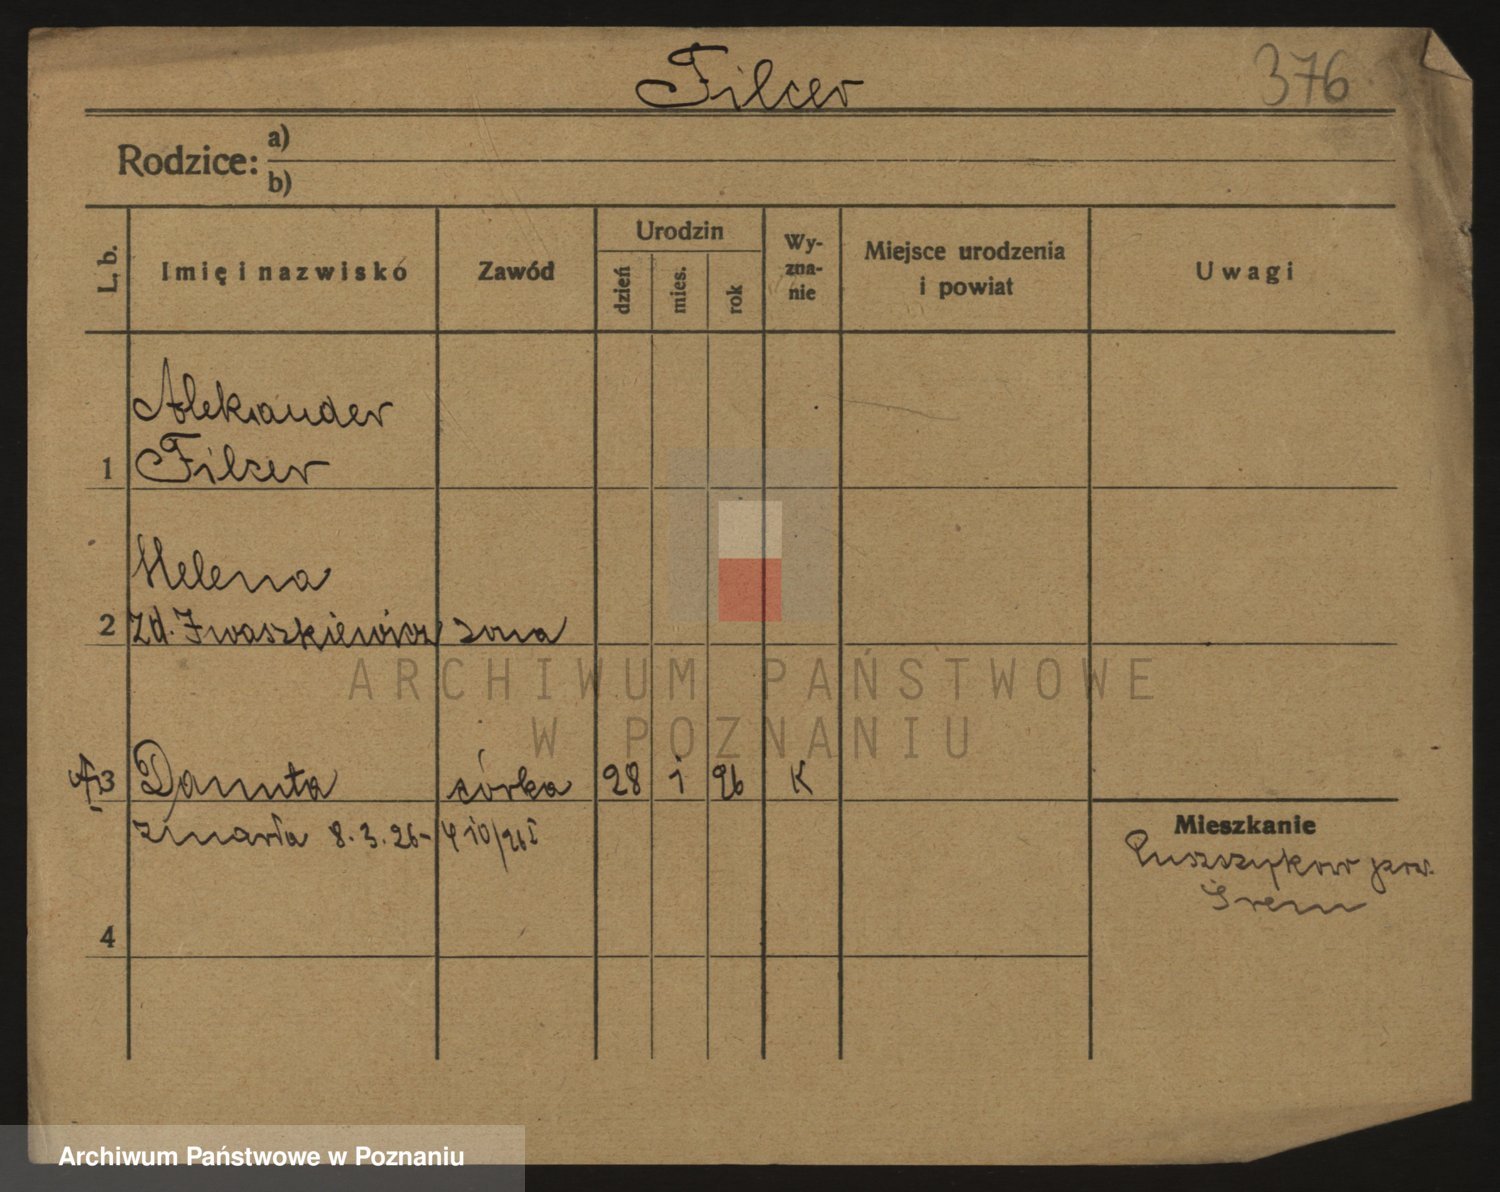 Filcer
376
Rodzice: a)
b)
L. b.
Imię i nazwisko
Zawód
Urodzin
dzień
mies.
rok
Wy-
zna-
nie
Miejsce urodzenia
i powiat
Uwagi
Aleksander
1 Filcer
Helena
2 zd. Iwaszkiewicz żona
3 Danuta córka 28 1 26 K
zmarła 8.3.26-
4
Mieszkanie
Puszczykow pow.
Śrem
ARCHIWUM PAŃSTWOWE
W POZNANIU
Archiwum Państwowe w Poznaniu